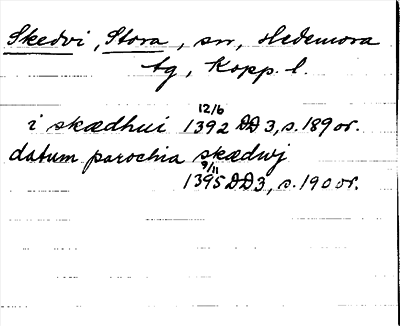 Skedvi, Stora, sn, Hedemora
tg, Kopp. l.
i skædhui 12/6 1392 DD 3, s. 189 or.
datum parochia skædwj
9/11 1395 DD 3, s. 190 or.